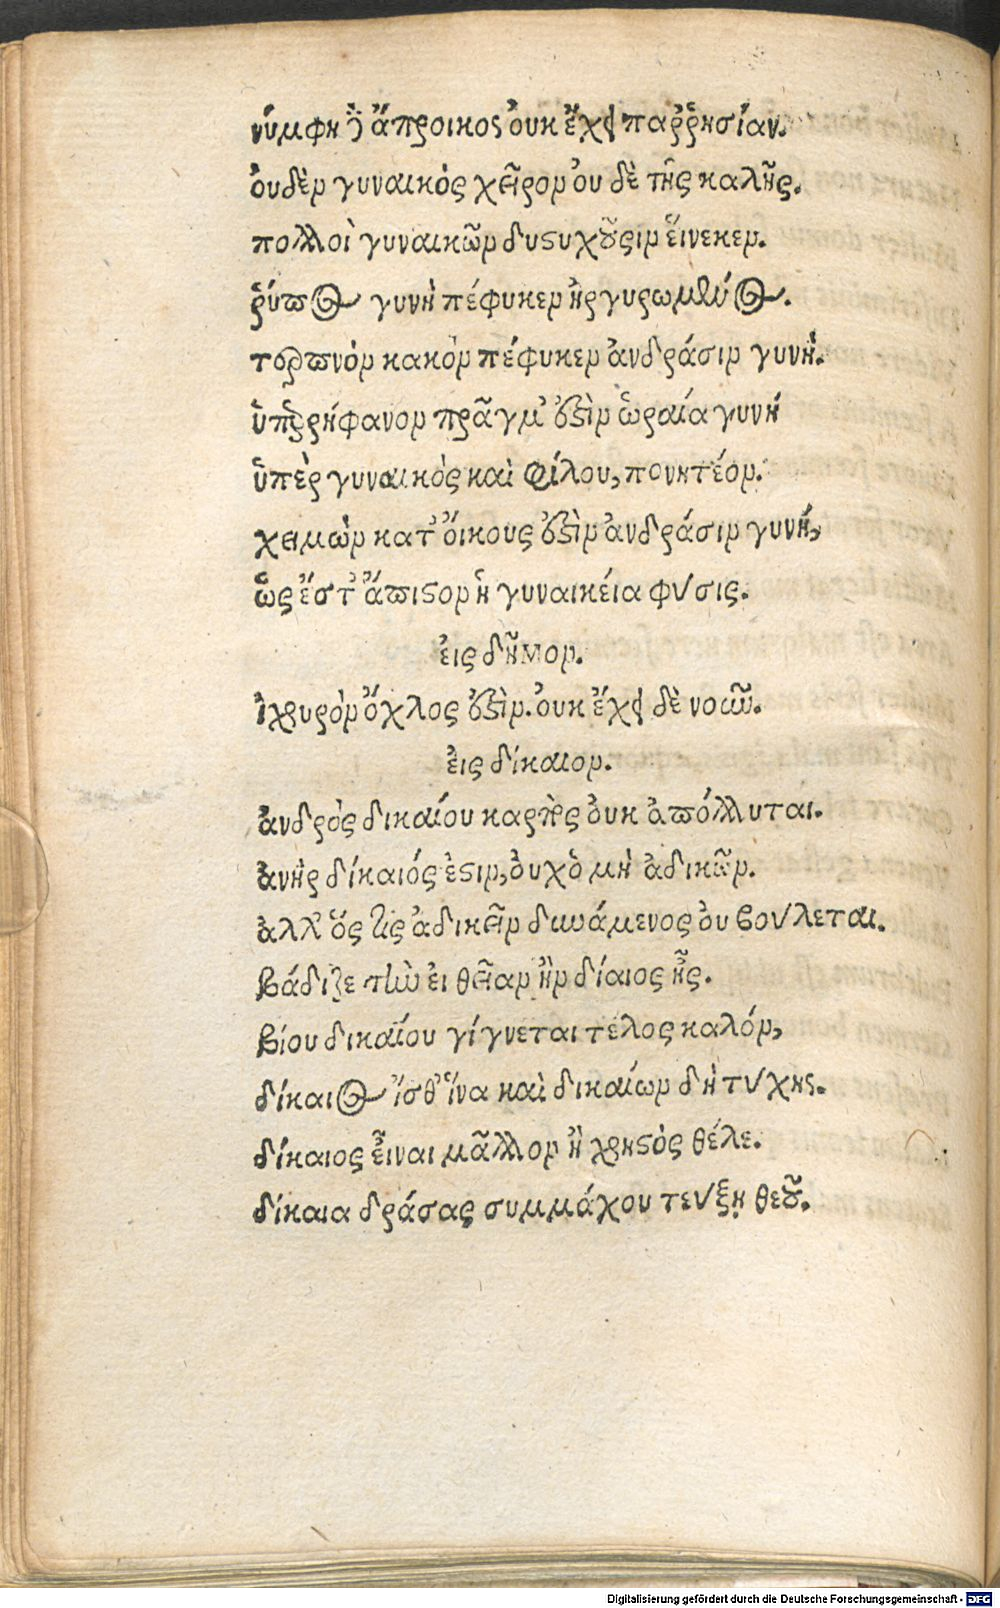 νύμφη δ' ἄπροικος ὀυκ ἔχει παῤῥησίαν.
ὀυδὲν γυναικὸς χεῖρον ὀυ δὲ τῆς καλῆς.
πολλοὶ γυναικῶν δυστυχοῦσιν εἵνεκεν.
ῥύπος γυνὴ πέφυκεν ἠργυρωμένος.
τερπνὸν κακὸν πέφυκεν ἀνδράσιν γυνή.
ὑπερήφανον πρᾶγμ' ἐστὶν ὡραία γυνή
ὑπὲρ γυναικὸς καὶ φίλου, πονητέον.
χειμὼν κατ' ὄικους ἐστὶν ἀνδράσιν γυνή,
ὡς ἔστ' ἄπιστον ἡ γυναικέια φύσις.
ἐις δῆμον.
ἰχυρὸν ὄχλος ἐστὶν. ὀυκ ἔχει δὲ νοῦν.
ἐις δίκαιον.
ἀνδρὸς δικαίου καρπὸς ὀυκ ἀπόλλυται.
ἀνὴρ δίκαιός ἐστιν, ὀυχ ὁ μὴ ἀδικῶν.
ἀλλ' ὅς τις ἀδικεῖν δυνάμενος ὀυ βούλεται.
βάδιζε τὴν ἐυθεῖαν ἢν δίαιος ἦς.
βίου δικαίου γίγνεται τέλος καλόν,
δίκαιος ἴσθ' ἵνα καὶ δικαίων δὴ τύχης.
δίκαιος εἶναι μᾶλλον ἢ χρηστὸς θέλε.
δίκαια δράσας συμμάχου τεύξῃ θεοῦ.
Digitalisierung gefördert durch die Deutsche Forschungsgemeinschaft - DFG